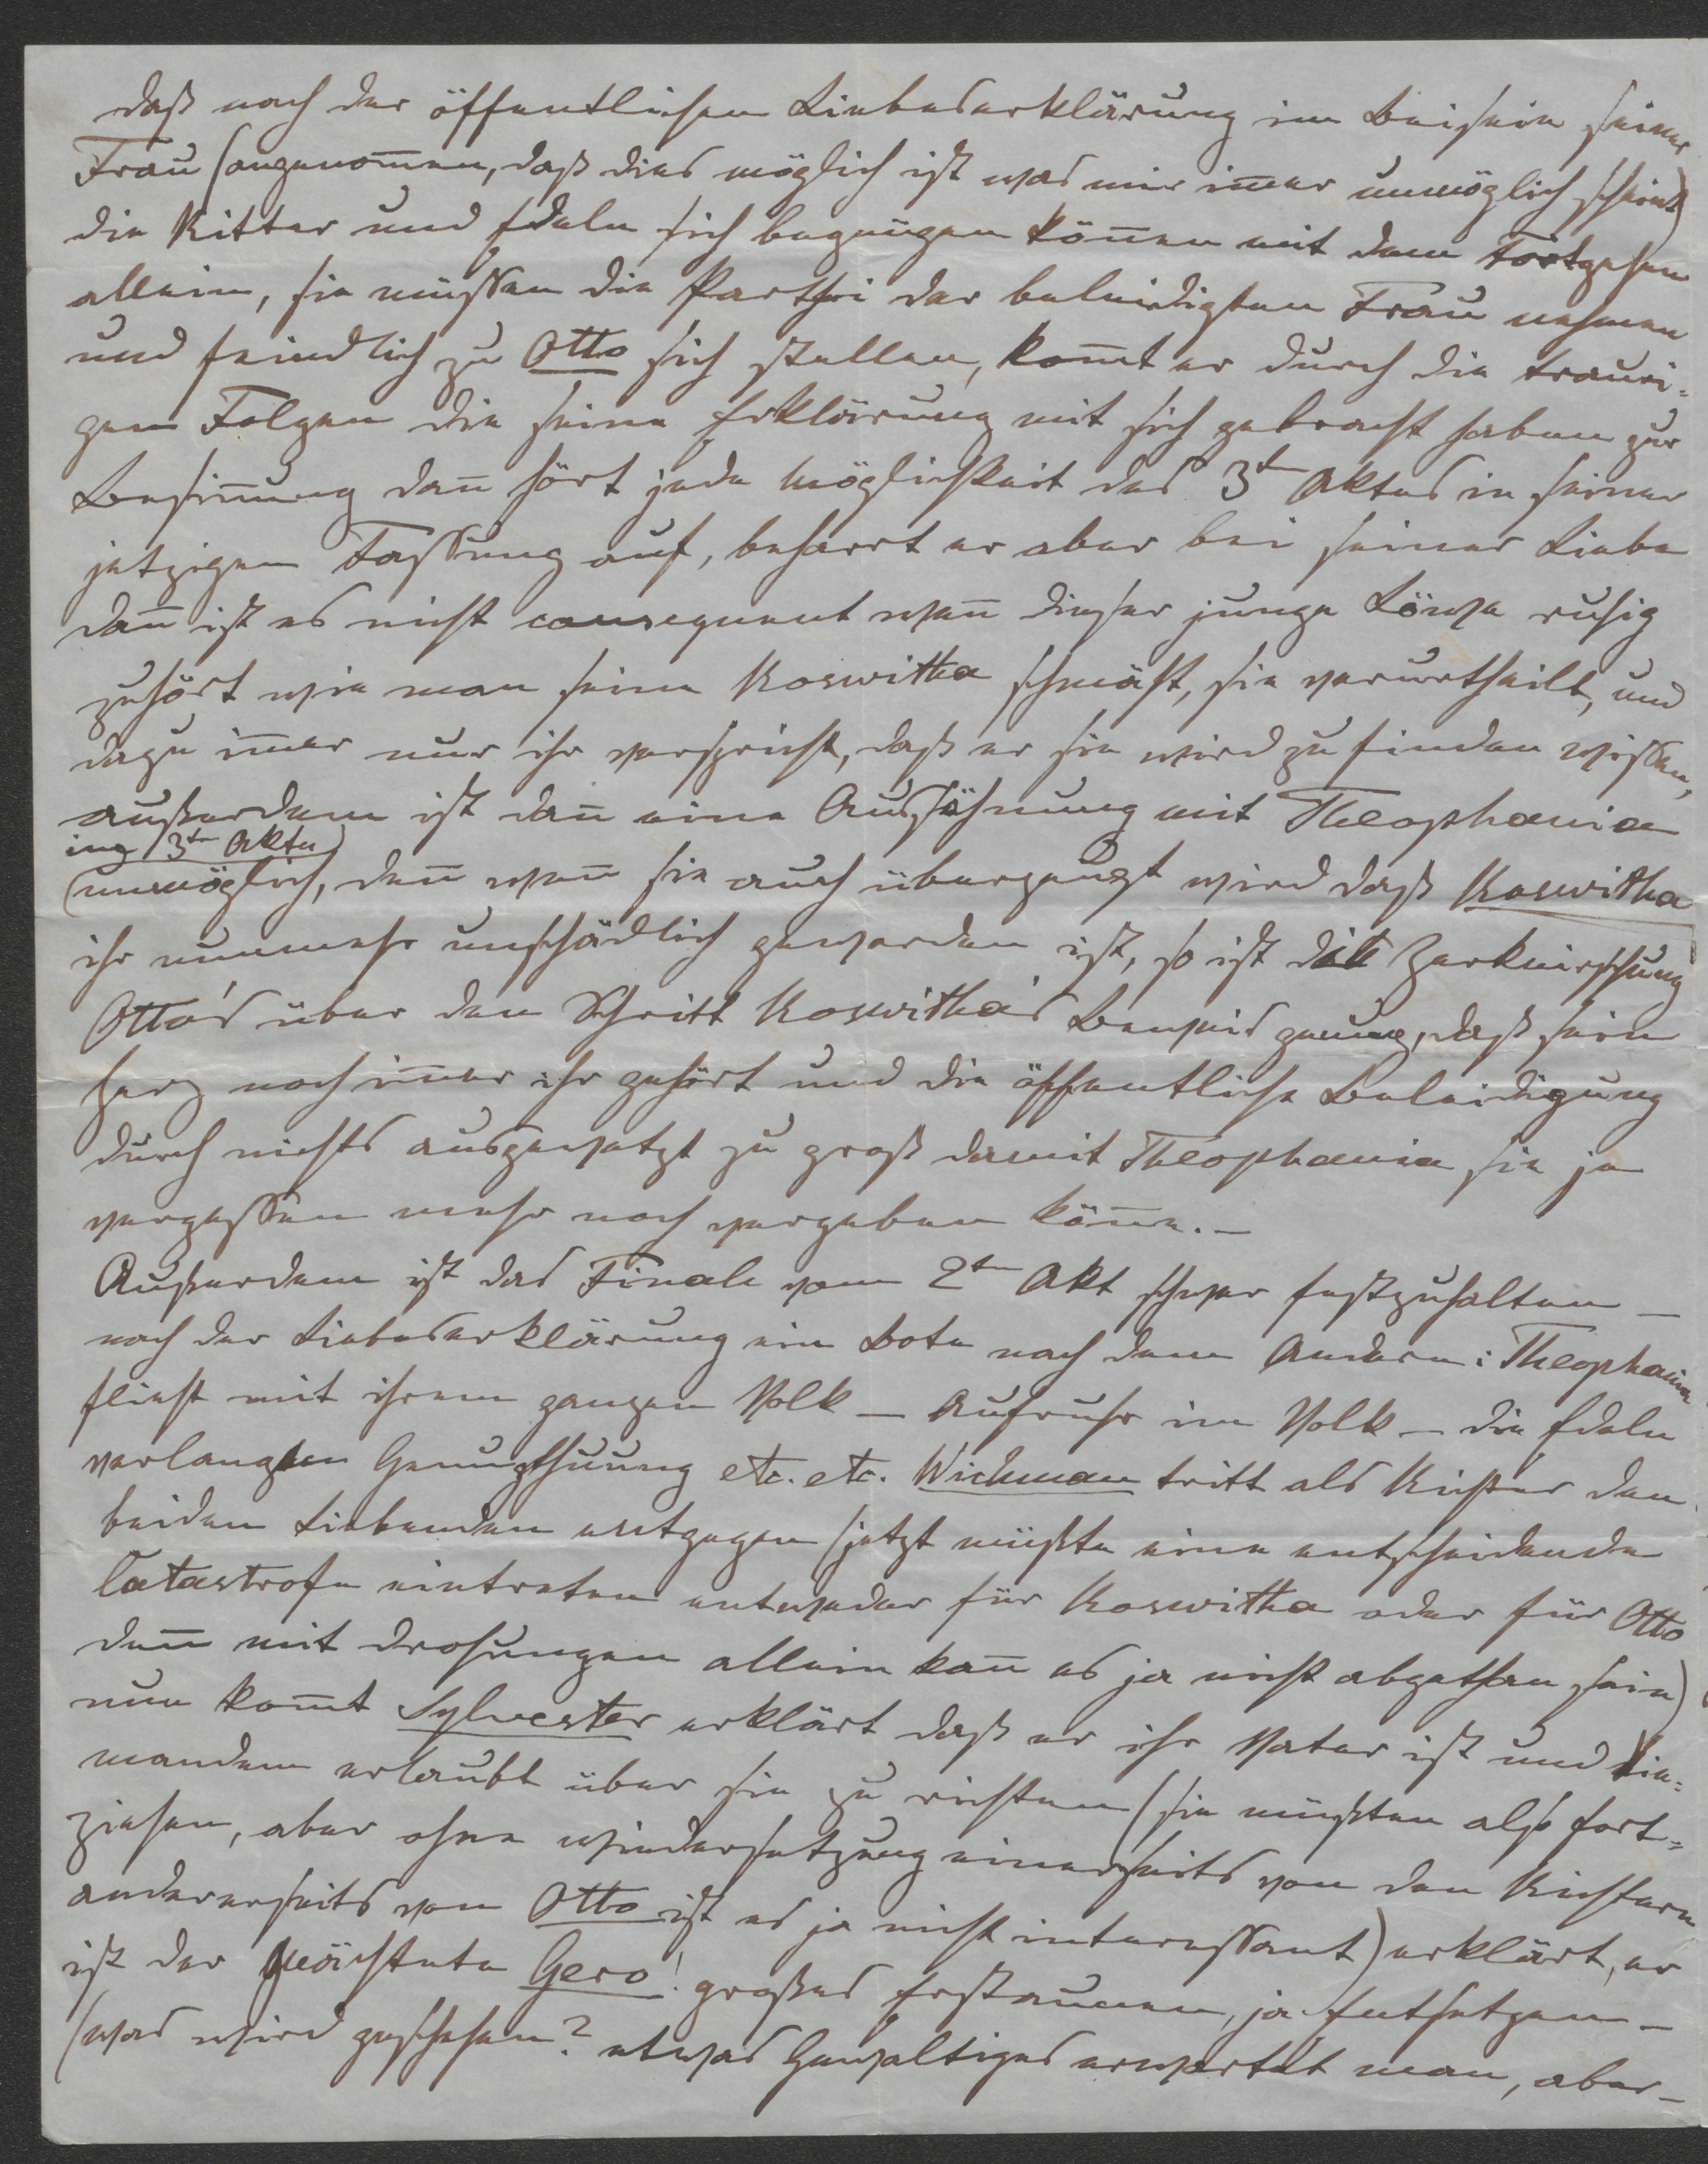 daß nach der öffentlichen Liebeserklärung im Beisein seiner
Frau (angenom̅en, daß dies möglich ist was mir im̅er unmöglich scheint)
die Ritter und Edeln sich begnügen kön̅en mit dem Fortgehen
allein, sie müssen die Parthei der beleidigten Frau nehmen
und feindlich zu Otto sich stellen, kom̅t er durch die trauri-
gen Folgen die seine Erklärung mit sich gebracht haben zur
Besin̅ung dan̅ hört jede Möglichkeit des 3t Aktes in seiner
jetzigen Fassung auf, beharrt er aber bei seiner Liebe
dan̅ ist es nicht consequent wen̅ dieser junge Löwe ruhig
zuhört wie man seine Roswitha schmäht, sie verurtheilt, und
dazu im̅er nur ihr verspricht, daß er sie wird zu finden wissen,
außerdem ist dan̅ eine Aussöhnung mit Theophania
im 3ten Akte
(unmöglich, den̅ wen̅ sie auch überzeugt wird daß Roswitha
ihr nunmehr unschädlich geworden ist, so ist die Zerknirschung
Otto's über den Schritt Roswitha's Beweis genug, daß sein
Herz noch im̅er ihr gehört und die öffentliche Beleidigung
durch nichts ausgewetzt zu groß damit Theophania sie je
vergessen mehr noch vergeben kön̅e. –
Außerdem ist das Finale vom 2ten Akt schwer festzuhalten –
nach der Liebeserklärung ein Bote nach dem Andern: Theophania
flieht mit ihrem ganzen Volk – Aufruhr im Volk – die Edeln
verlangen Genugthuung etc. etc. Wichman tritt als Richter den
beiden Liebenden entgegen (jetzt müßte eine entscheidende
Catastrofe eintreten entweder für Roswitha oder für Otto
den̅ mit Drohungen allein kan̅ es ja nicht abgethan sein)
nun kom̅t Sylvester erklärt daß er ihr Vater ist und Nie-
mandem erlaubt über sie zu richten (sie müßten also fort-
ziehen, aber ohne Wiedersetzung einerseits von den Richtern
andererseits von Otto ist es ja nicht interessant) erklärt, er
ist der geächtete Gero! großes Erstaunen, ja Entsetzen –
(was wird geschehen? etwas Gewaltiges erwartet man, aber –